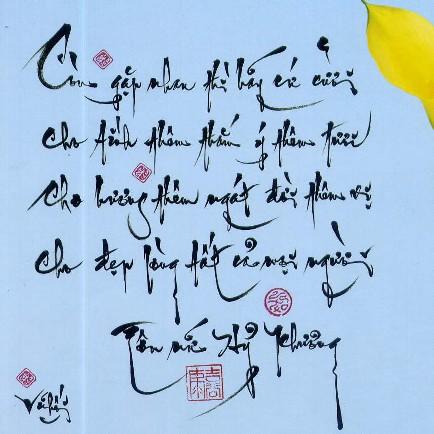 Còn gặp nhau thì hãy cứ cười
Cho tình thêm thắm ý thêm tươi
Cho hương thêm ngát đời thêm vị
Cho đẹp lòng tất cả mọi người
Tôn nữ Hỷ Khương